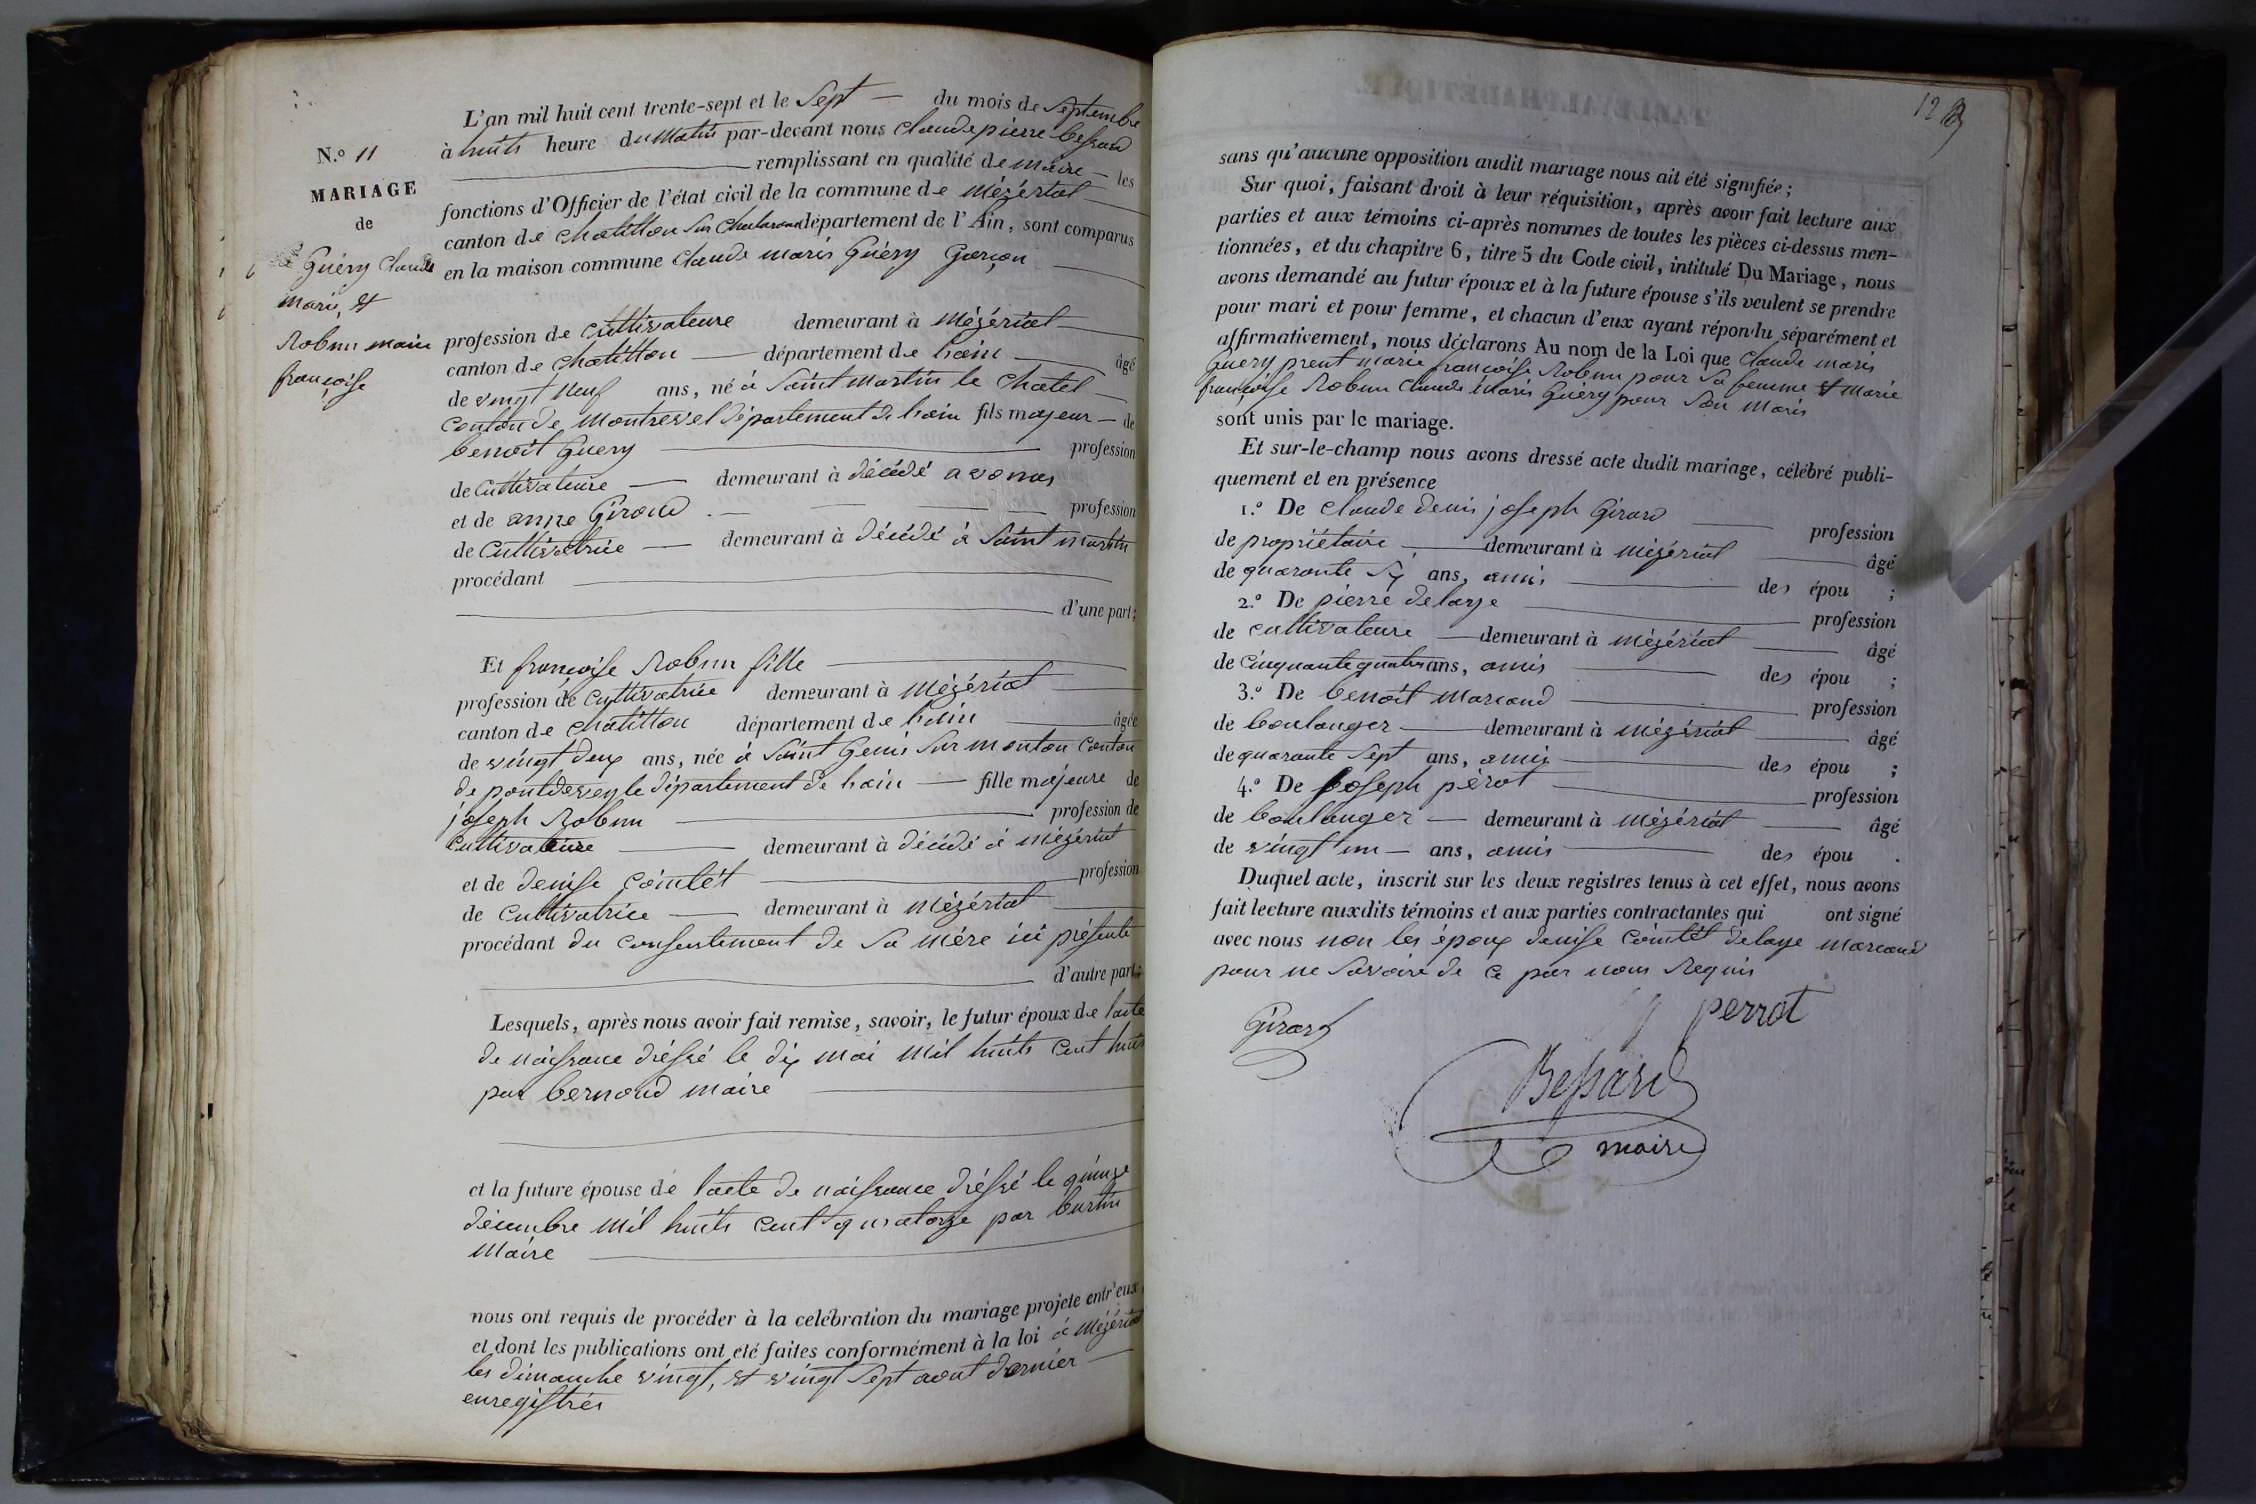 N.º 11
MARIAGE
de
Guéry Claude
marie, et
Robin marie
françoise
L'an mil huit cent trente-sept et le Sept — du mois de Septembre
à huits heure du Matin par-devant nous Claude pierre bessard
remplissant en qualité de maire — les
fonctions d'Officier de l'état civil de la commune de Mézériat
canton de chatillon Sur Chalaronne département de l'Ain, sont comparus
en la maison commune Claude marie Guéry Garçon
profession de Cultivateure demeurant à Mézériat
canton de Chatillon — département de l'ain — âgé
de vingt neuf ans, né à Saint Martin le Chatel
Canton de Montrevel département de l'ain fils majeur — de
benoit Guery profession
de Cultivateure — demeurant à décédé a vonas
et de anne Giroud profession
de Cultivatrice — demeurant à décédé à Saint martin
procédant
d'une part;
Et françoise Robin fille
profession de Cultivatrice demeurant à Mézériat
canton de Chatillon département de l'ain âgée
de vingt deux ans, née à Saint Genis Sur menton Canton
de pontdeveyle département de l'ain — fille majeure de
joseph Robin profession de
Cultivateure demeurant à décédé à Mézériat
et de denise Comtét profession
de Cultivatrice — demeurant à Mézériat
procédant du Consentement de Sa Mére ici présente
d'autre part;
Lesquels, après nous avoir fait remise, savoir, le futur époux de l'acte
de naissance dréssé le dix mai mil huits cent huit
par bernoud maire
et la future épouse de l'acte de naissance dréssé le quinze
décembre mil huits cent quatorze par burtin
Maire
nous ont requis de procéder à la celébration du mariage projeté entr'eux
et dont les publications ont été faites conformément à la loi à Mézériat
les dimanche vingt, et vingt Sept aout dernier
enregistrés
12
sans qu'aucune opposition audit mariage nous ait été signifiée;
Sur quoi, faisant droit à leur réquisition, après avoir fait lecture aux
parties et aux témoins ci-après nommés de toutes les pièces ci-dessus men-
tionnées, et du chapitre 6, titre 5 du Code civil, intitulé Du Mariage, nous
avons demandé au futur époux et à la future épouse s'ils veulent se prendre
pour mari et pour femme, et chacun d'eux ayant répondu séparément et
affirmativement, nous déclarons Au nom de la Loi que Claude marie
Guery prent marie françoise Robin pour Sa femme et marie
françoise Robin Claude Marie Guéry pour Son Maris
sont unis par le mariage.
Et sur-le-champ nous avons dressé acte dudit mariage, célébré publi-
quement et en présence
1.º De Claude denis joseph Girard profession
de propriétaire — demeurant à Mézériat âgé
de quarante Six ans, amis des épou ;
2.º De pierre delaye profession
de Cultivateure — demeurant à Mézériat âgé
de Cinquante quatre ans, amis des épou ;
3.º De benoit Marcaud profession
de boulanger — demeurant à Mézériat âgé
de quarante Sept ans, amis des épou ;
4.º De Joseph pérot profession
de boulanger — demeurant à Mézériat âgé
de vingt un — ans, amis des épou .
Duquel acte, inscrit sur les deux registres tenus à cet effet, nous avons
fait lecture auxdits témoins et aux parties contractantes qui ont signé
avec nous non les époux denise Comtét delaye marcaud
pour ne Savoire de Ce par nous Requis
Girard
perrot
Bessard
maire